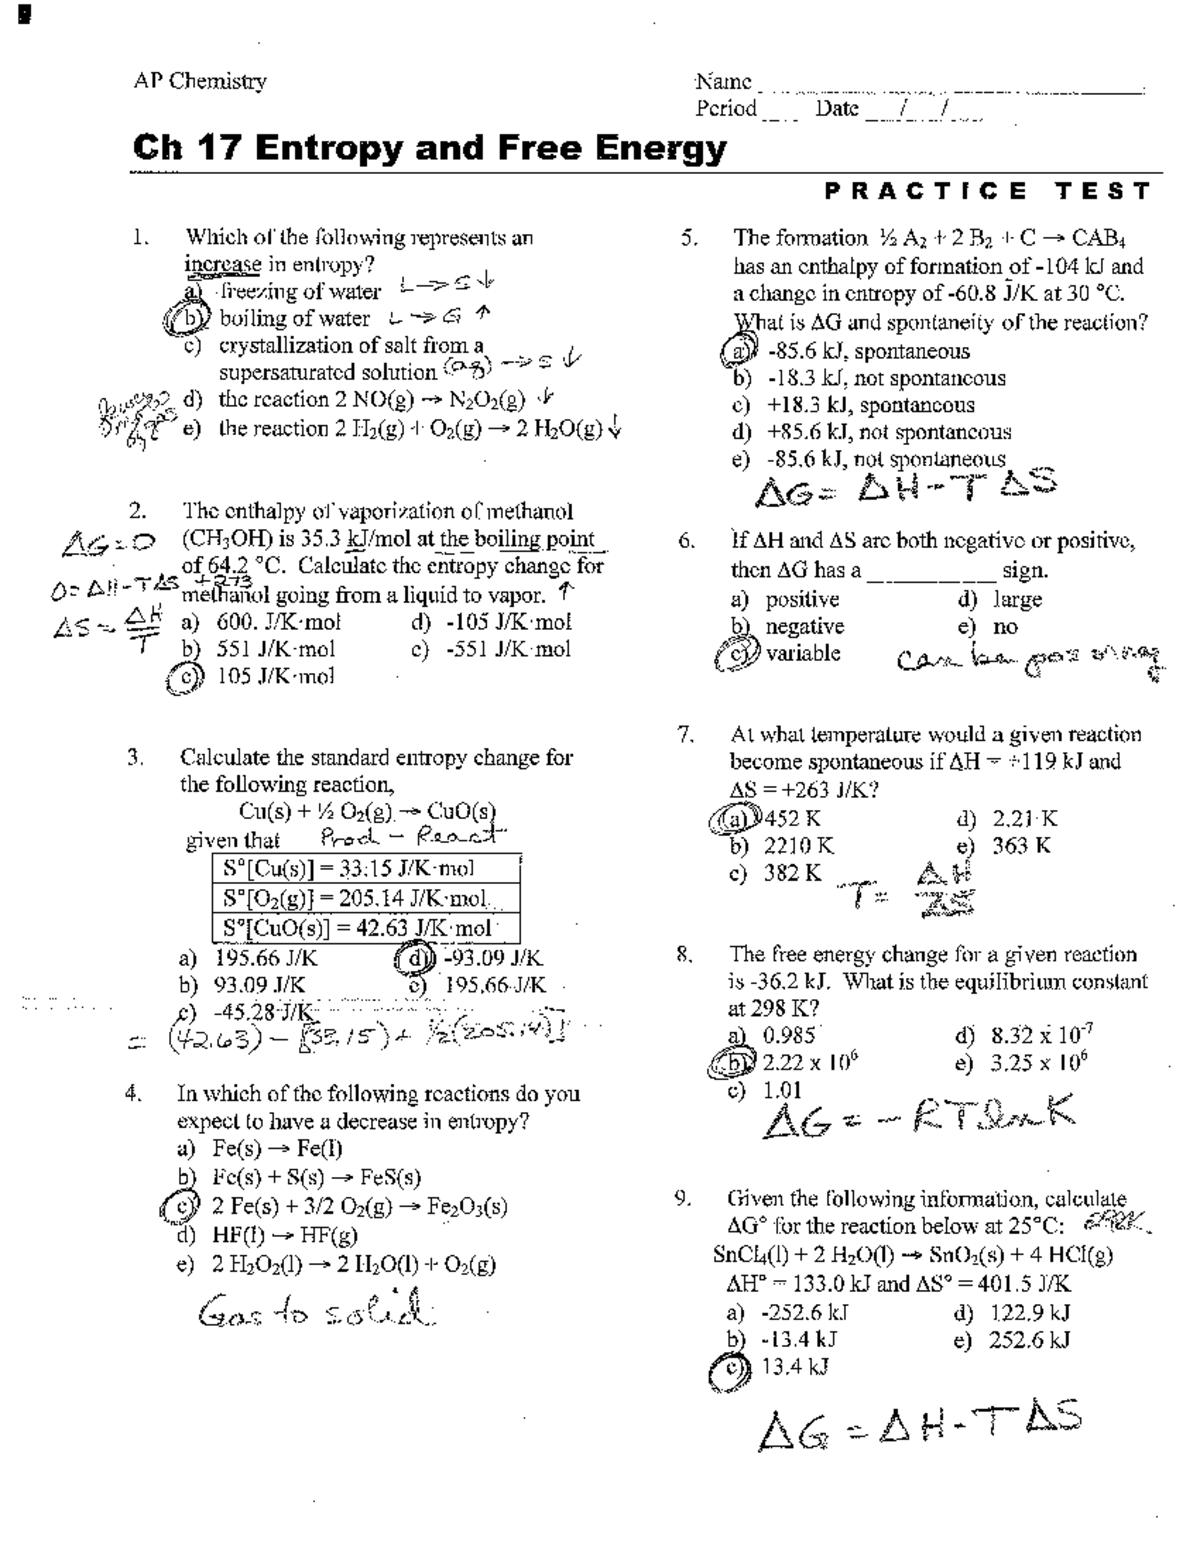 AP Chemistry
Name
Period Date / /
Ch 17 Entropy and Free Energy
PRACTICE TEST
1. Which of the following represents an
increase in entropy?
a) freezing of water L → S ↓
b) boiling of water L → G ↑
c) crystallization of salt from a
supersaturated solution (aq) → S ↓
d) the reaction 2 NO(g) → N₂O₂(g) ↓
e) the reaction 2 H₂(g) + O₂(g) → 2 H₂O(g) ↓
2. The enthalpy of vaporization of methanol
(CH₃OH) is 35.3 kJ/mol at the boiling point
of 64.2 °C. Calculate the entropy change for
+273
methanol going from a liquid to vapor. ↑
ΔG = 0
0 = ΔH - TΔS
ΔS = ΔH/T
a) 600. J/K·mol d) -105 J/K·mol
b) 551 J/K·mol e) -551 J/K·mol
c) 105 J/K·mol
3. Calculate the standard entropy change for
the following reaction,
Cu(s) + ½ O₂(g) → CuO(s)
given that Prod - React
S°[Cu(s)] = 33.15 J/K·mol
S°[O₂(g)] = 205.14 J/K·mol
S°[CuO(s)] = 42.63 J/K·mol
a) 195.66 J/K d) -93.09 J/K
b) 93.09 J/K e) 195.66 J/K
c) -45.28 J/K
= (42.63) - [33.15) + ½(205.14)]
4. In which of the following reactions do you
expect to have a decrease in entropy?
a) Fe(s) → Fe(l)
b) Fe(s) + S(s) → FeS(s)
c) 2 Fe(s) + 3/2 O₂(g) → Fe₂O₃(s)
d) HF(l) → HF(g)
e) 2 H₂O₂(l) → 2 H₂O(l) + O₂(g)
Gas to solid
5. The formation ½ A₂ + 2 B₂ + C → CAB₄
has an enthalpy of formation of -104 kJ and
a change in entropy of -60.8 J/K at 30 °C.
What is ΔG and spontaneity of the reaction?
a) -85.6 kJ, spontaneous
b) -18.3 kJ, not spontaneous
c) +18.3 kJ, spontaneous
d) +85.6 kJ, not spontaneous
e) -85.6 kJ, not spontaneous
ΔG = ΔH - TΔS
6. If ΔH and ΔS are both negative or positive,
then ΔG has a ___________ sign.
a) positive d) large
b) negative e) no
c) variable can be pos or neg
7. At what temperature would a given reaction
become spontaneous if ΔH = +119 kJ and
ΔS = +263 J/K?
a) 452 K d) 2.21 K
b) 2210 K e) 363 K
c) 382 K T = ΔH/ΔS
8. The free energy change for a given reaction
is -36.2 kJ. What is the equilibrium constant
at 298 K?
a) 0.985 d) 8.32 x 10⁻⁷
b) 2.22 x 10⁶ e) 3.25 x 10⁶
c) 1.01
ΔG = -RTlnK
9. Given the following information, calculate
ΔG° for the reaction below at 25°C: 298K
SnCl₄(l) + 2 H₂O(l) → SnO₂(s) + 4 HCl(g)
ΔH° = 133.0 kJ and ΔS° = 401.5 J/K
a) -252.6 kJ d) 122.9 kJ
b) -13.4 kJ e) 252.6 kJ
c) 13.4 kJ
ΔG = ΔH - TΔS